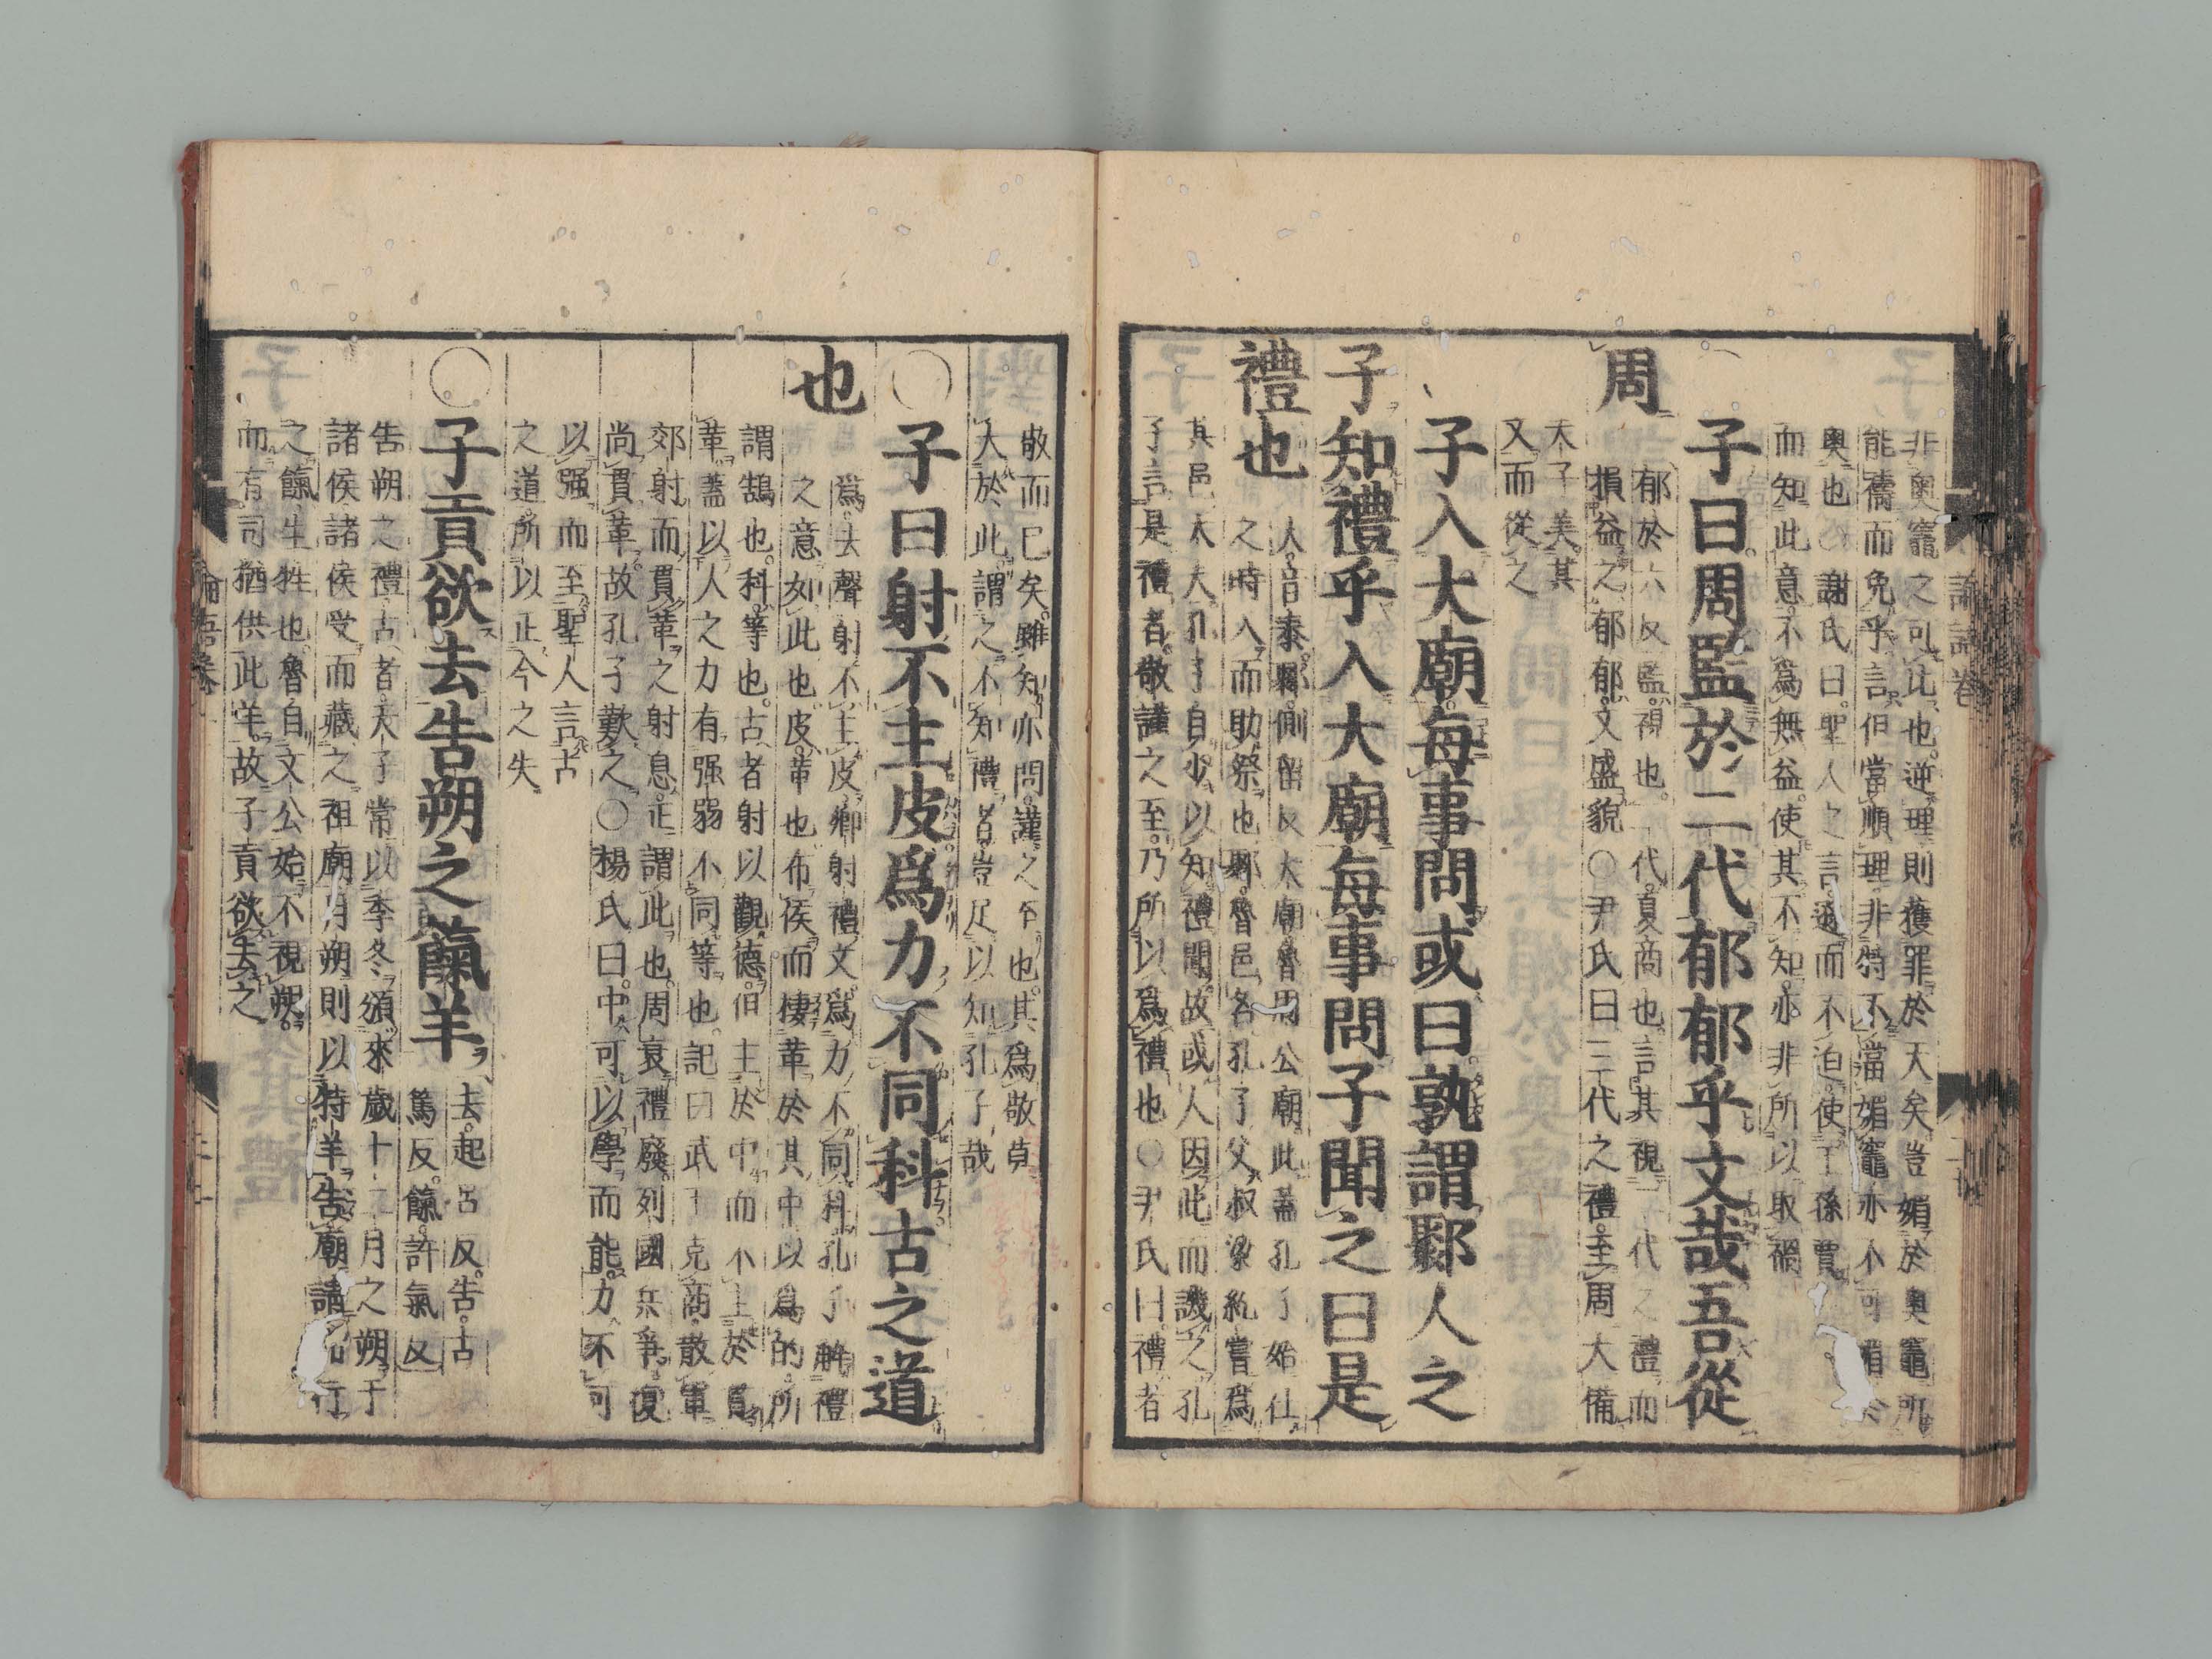 非奧竈之可比也逆理則獲罪於天矣豈媚於奧竈所
能禱而免乎言但當順理非特不當媚竈亦不可媚於
奧也 謝氏曰聖人之言遜而不迫使王孫賈
而知此意不爲無益使其不知亦非所以取禍
子曰周監於二代郁郁乎文哉吾從
周
郁於六反監視也二代夏商也言其視二代之禮而
損益之郁郁文盛貌○尹氏曰三代之禮至周大備
夫子美其
文而從之
子入大廟每事問或曰孰謂鄹人之
子知禮乎入大廟每事問子聞之曰是
禮也
大音泰鄹側留反大廟魯周公廟此蓋孔子始仕
之時入而助祭也鄹魯邑名孔子父叔梁紇嘗爲
其邑大夫孔子自少以知禮聞故或人因此而譏之孔
子言是禮者敬謹之至乃所以爲禮也○尹氏曰禮者
敬而已矣雖知亦問謹之至也其爲敬莫
大於此謂之不知禮者豈足以知孔子哉
○子曰射不主皮爲力不同科古之道
也
爲去聲射不主皮鄕射禮文爲力不同科孔子解禮
之意如此也皮革也布侯而棲革於其中以爲的所
謂鵠也科等也古者射以觀德但主於中而不主於貫
革蓋以人之力有强弱不同等也記曰武王克商散軍
郊射而貫革之射息正謂此也周衰禮廢列國兵爭復
尚貫革故孔子歎之○楊氏曰中可以學而能力不可
以强而至聖人言古
之道所以正今之失
○子貢欲去告朔之餼羊
去起呂反告古
篤反餼許氣反
告朔之禮古者天子常以季冬頒來歲十二月之朔于
諸侯諸侯受而藏之祖廟月朔則以特羊告廟請而行
之餼生牲也魯自文公始不視朔
而有司猶供此羊故子貢欲去之